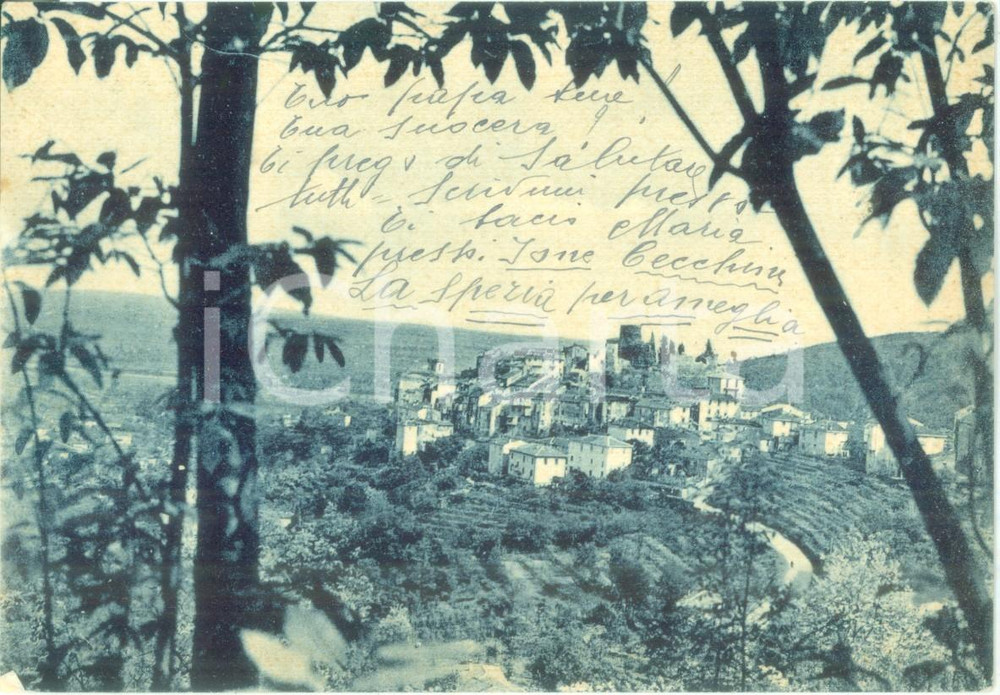 tuo papà
tua suocera
Ti prego di salutare
tutti - Scrivimi presto
Ti bacio Maria
presso. Isne Cecchini
La Spezia per Ameglia
icharta